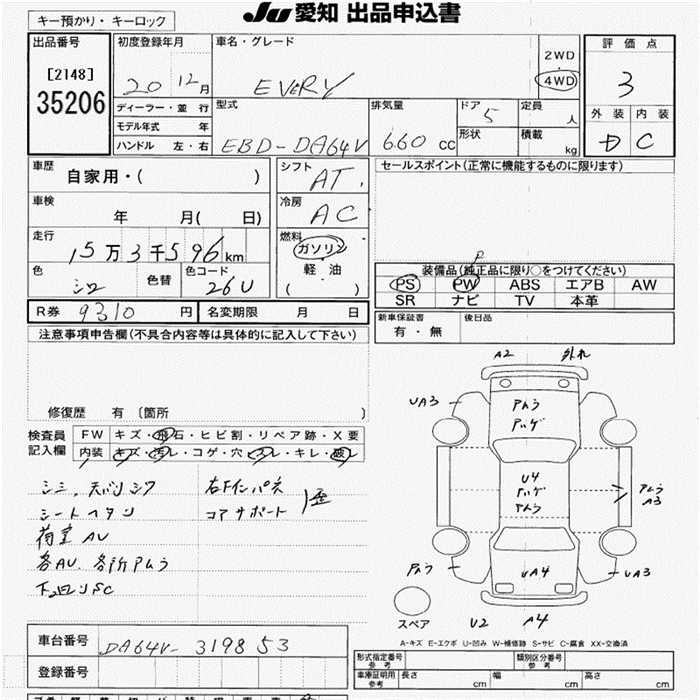 JU 愛知 出品申込書
キー預かり・キーロック
出品番号
[2148]
35206
初度登録年月
20 12月
車名・グレード
EVERY
2WD
4WD
評価点
3
外装 内装
D C
ディーラー・並行
モデル年式 年
ハンドル 左・右
型式
EBD-DA64V
排気量
660 CC
ドア
5
形状
定員
人
積載
kg
車歴
自家用・( )
シフト
AT
冷房
AC
セールスポイント(正常に機能するものに限ります)
車検
年 月( 日)
走行
15万3千596km
燃料
ガソリン
軽・油
( )
色
シロ
色替
色コード
26U
装備品(純正品に限り○をつけてください)
P
PS PW ABS エアB AW
SR ナビ TV 本革
R券 9310 円
名変期限 月 日
新車保証書
有・無
後日品
注意事項申告欄(不具合内容等は具体的に記入して下さい)
修復歴 有 〔箇所 〕
検査員
記入欄
FW キズ・飛石・ヒビ割・リペア跡・X要
内装 キズ・汚レ・コゲ・穴・スレ・キレ・破レ
シミ、天バリシワ
シートヘタリ
荷室AU
各AU、各所アムラ
右Fインパネ
コアサポート
歪
A2 外れ
UA3
アムラ
アハゲ
U4
アハゲ
アムラ
アムラ
A3
アムラ
UA4
UA3
スペア
U2 A4
A-キズ E-エクボ U-凹み W-補修跡 S-サビ C-腐食 XX-交換済
車台番号
DA64V-319853
登録番号
形式指定番号
参考
類別区分番号
参考
車庫証明用
参考
長さ cm
幅 cm
高さ cm